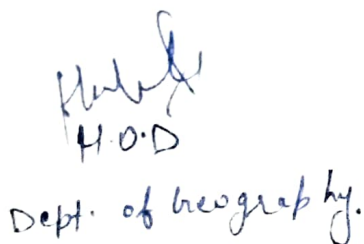 H.O.D
Dept. of Geography.